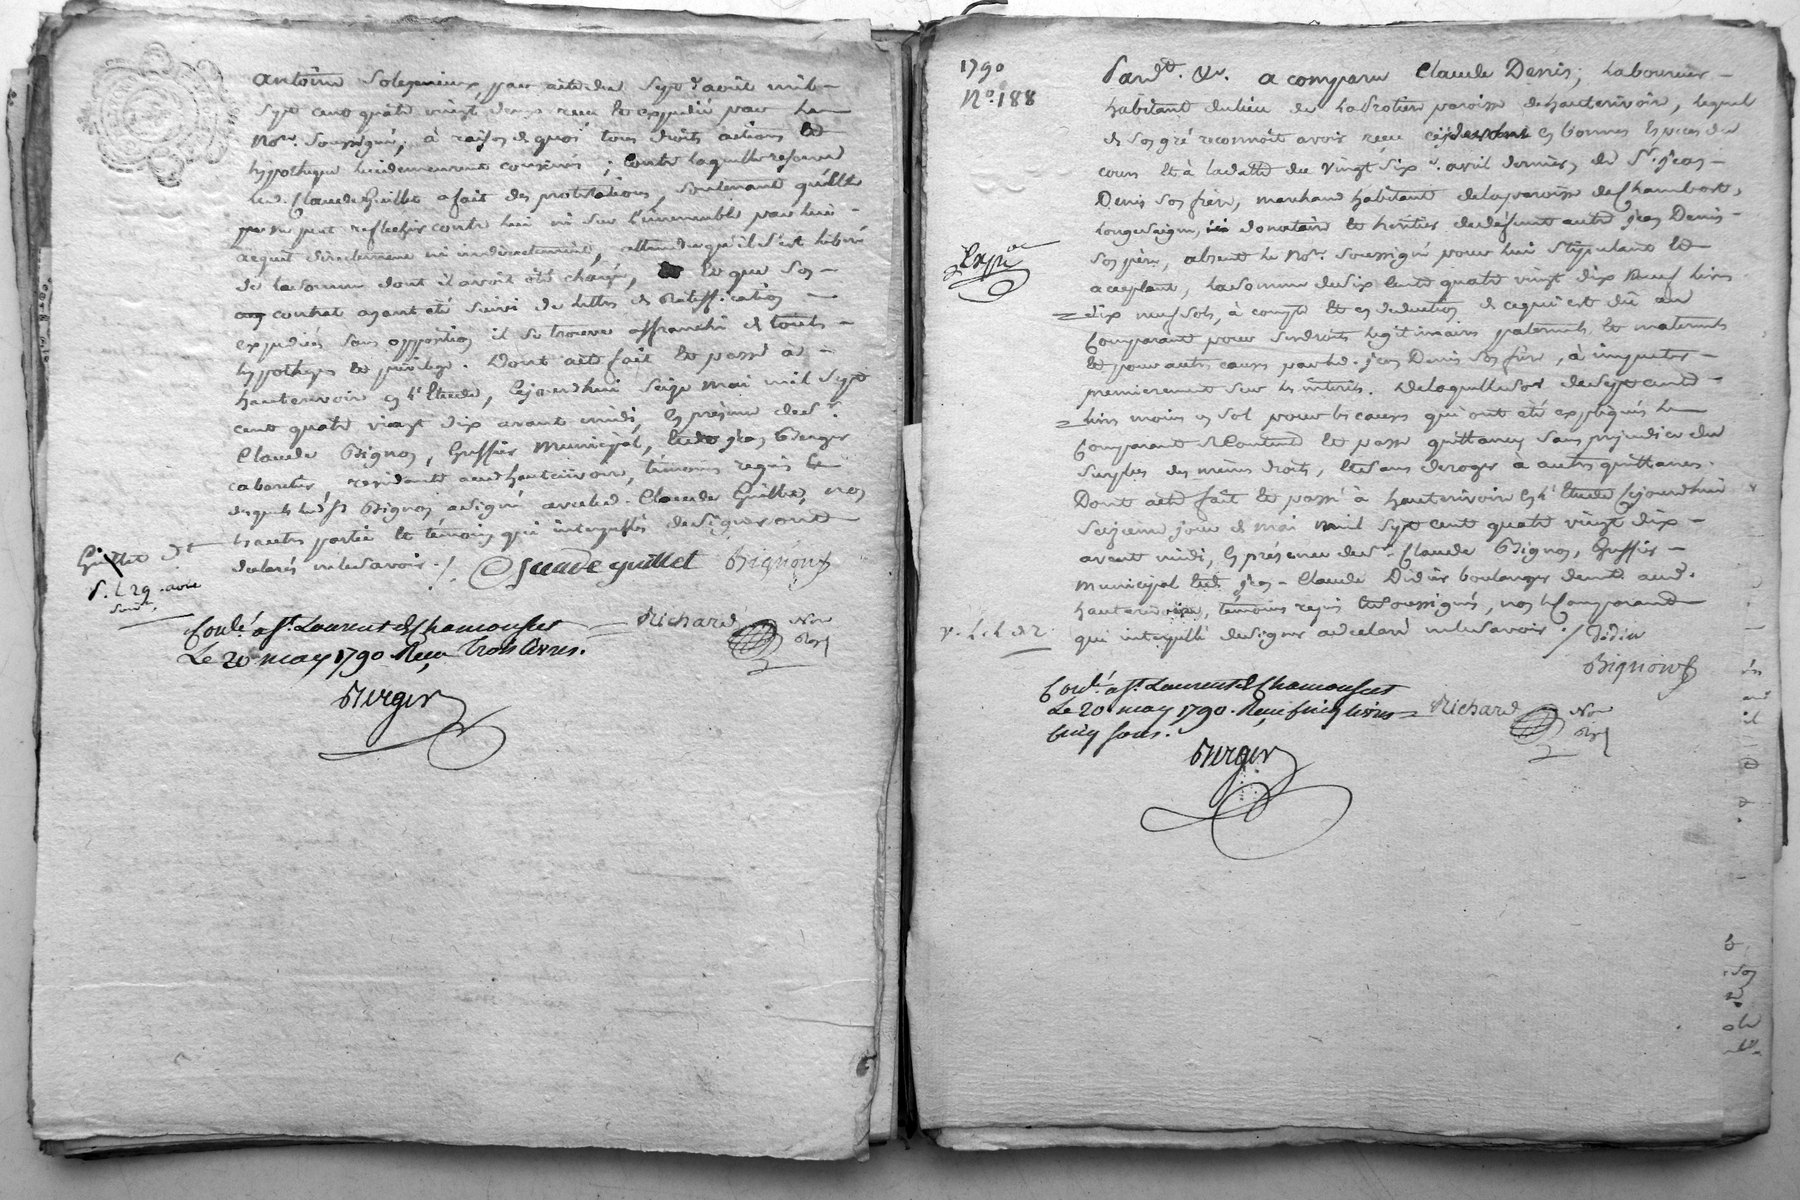 antoine Solegnieux, par acte du Sept avril mil
Sept cent quatre vingt deux recu et expedié par le
Nore. Soussigné, à raison de quoi tous droits actions et
hypotheque lui demeurent conservés ; contre laquelle reserve
led. Claude Guillet a fait des protestations, soutenant qu'elle
ne peut reflechir contre lui ni sur l'immeuble par lui
acquit directement ni indirectement, attendu qu'il s'est liberé
de la somme dont il avoit été chargé, et que son
contrat ayant été suivi de lettres de Ratiffication
expediées sans opposition il se trouve affranchi de toutes
hypotheques et privilege. Dont acte fait et passé à
hauterivoir en l'Etude, cejourdhui Seize mai mil Sept
cent quatre vingt dix avant midi, en présence de Sr.
Claude Bignon, Greffier municipal, et de jean Berger
cabaretier residants aud. hauterivoir, témoins requis
desquels led. Sr. Bignon a signé avec led. Claude Guillet, non
les autres parties et témoin qui interpellés de signer ont
declaré ne le savoir ./.
Claude guillet Bignon
Guillet
Conlé. a St. Laurent de Chamousset
Le 20 may 1790. Reçu Trois livres.
Richard
Nore
Berger
1790
No. 188
Pardt. &c. a comparu Claude Denis, Laboureur
habitant du lieu de la Frotiere paroisse de hauterivoir, lequel
de son gré reconnoit avoir recu en bonnes Especes de
cours et à la datte du vingt six avril dernier, de Sr. jean
Denis son frere, marchand habitant de la paroisse de Chambost
Longesaigne, donataire et heritier de défunt autre jean Denis
son père, absent le Nore. Soussigné pour lui stipulant et
acceptant, la somme de six cents quatre vingt dix neuf livres
dix neuf sols, à compte et en deduction de ce qui est dû au
Comparant pour ses droits legitimaires paternels et maternels
et pour autres causes par led. jean Denis son frere, à imputer
premierement sur les intérêts. De laquelle somme de sept cents
livres moins un sol pour les causes qui ont été expliquées le
Comparant se Contente et passe quittance sans prejudice du
surplus des mêmes droits, et sans deroger à autres quittances.
Dont acte fait et passé à hauterivoir en l'Etude cejourdhui
Seizieme jour de mai mil Sept cent quatre vingt dix
avant midi, en présence de Sr. Claude Bignon, Greffier
municipal et de jean Claude Didier boulanger demt. aud.
hauterivoir, témoins requis et soussignés, non le Comparant
qui interpellé de signer a declaré ne le savoir ./. Didier
Bignon
Conlé. a St. Laurent de Chamousset
Le 20 may 1790. Reçu cinq livres
cinq sous.
Richard
Nore
Berger